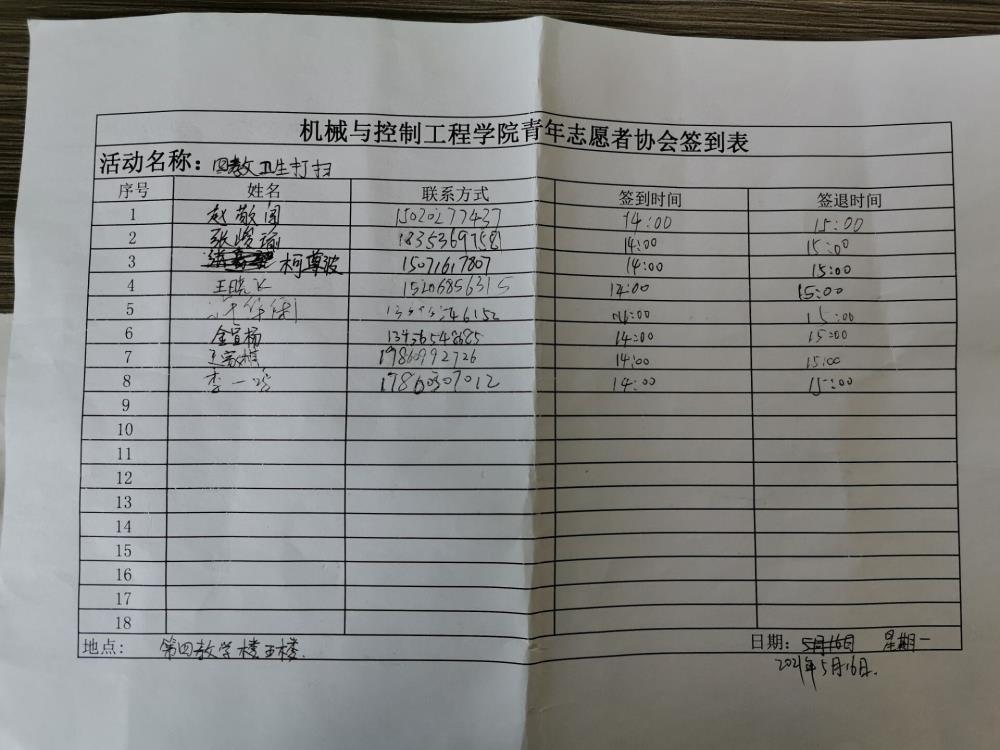 机械与控制工程学院青年志愿者协会签到表
活动名称：四教卫生打扫
序号 姓名 联系方式 签到时间 签退时间
1 赵敬国 15020277437 14:00 15:00
2 张峻瑜 18353697581 14:00 15:00
3 柯尊波 15071617807 14:00 15:00
4 王晓飞 15206856315 14:00 15:00
5 14:00 15:00
6 金宣杨 13456548685 14:00 15:00
7 19860992726 14:00 15:00
8 李一 17860307012 14:00 15:00
9
10
11
12
13
14
15
16
17
18
地点: 第四教学楼五楼. 日期: 5月16日 星期一
2021年5月16日.